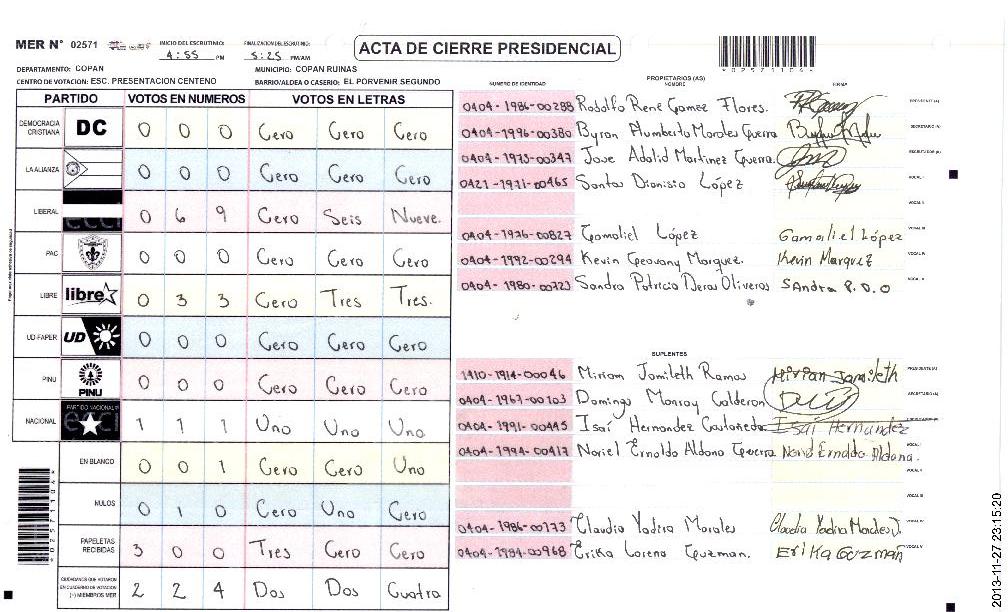 MER N° 02571 INICIO DEL ESCRUTINIO: 4:55 PM FINALIZACION DEL ESCRUTINIO: 5:25 PM/AM
ACTA DE CIERRE PRESIDENCIAL
*02571104*
DEPARTAMENTO: COPAN MUNICIPIO: COPAN RUINAS
CENTRO DE VOTACION: ESC. PRESENTACION CENTENO BARRIO/ALDEA O CASERIO: EL PORVENIR SEGUNDO
PARTIDO VOTOS EN NUMEROS VOTOS EN LETRAS
DEMOCRACIA CRISTIANA DC 0 0 0 Cero Cero Cero
LA ALIANZA 0 0 0 Cero Cero Cero
LIBERAL 0 6 9 Cero Seis Nueve.
PAC 0 0 0 Cero Cero Cero
LIBRE libre 0 3 3 Cero Tres Tres.
UD-FAPER UD 0 0 0 Cero Cero Cero
PINU PINU 0 0 0 Cero Cero Cero
NACIONAL PARTIDO NACIONAL 1 1 1 Uno Uno Uno
EN BLANCO 0 0 1 Cero Cero Uno
NULOS 0 1 0 Cero Uno Cero
PAPELETAS RECIBIDAS 3 0 0 Tres Cero Cero
CIUDADANOS QUE VOTARON EN CUADERNO DE VOTACION (+) MIEMBROS MER 2 2 4 Dos Dos Cuatro
*02571104*
PROPIETARIOS (AS)
NUMERO DE IDENTIDAD NOMBRE FIRMA
0404-1986-00288 Rodolfo Rene Gomez Flores. PRESIDENTE (A)
0404-1996-00380 Byron Humberto Morales Guerra SECRETARIO (A)
0404-1973-00347 Jose Adalid Martinez Guerra. ESCRUTADOR (A)
0421-1971-00465 Santos Dionisio López VOCAL I
VOCAL II
0404-1976-00827 Gamaliel López Gamaliel López VOCAL III
0404-1992-00294 Kevin Geovany Marquez. Kevin Marquez VOCAL IV
0404-1980-00723 Sandra Patricia Deras Oliveros SAndra P. D. O VOCAL V
SUPLENTES
1410-1974-00046 Miriam Jamileth Ramos Mirian Jamileth PRESIDENTE (A)
0404-1967-00103 Domingo Monroy Calderon SECRETARIO (A)
0404-1991-00445 Isaí Hernandez Castañeda Isaí Hernandez
0404-1994-00417 Noriel Ernaldo Aldana Guerra Noriel Ernaldo Aldana. VOCAL I
VOCAL II
VOCAL III
0404-1986-00773 Claudia Yadira Morales Claudia Yadira Morales VOCAL IV
0404-1984-00968 Erika Lorena Guzman. Erika Guzmán VOCAL V
2013-11-27 23:15:20